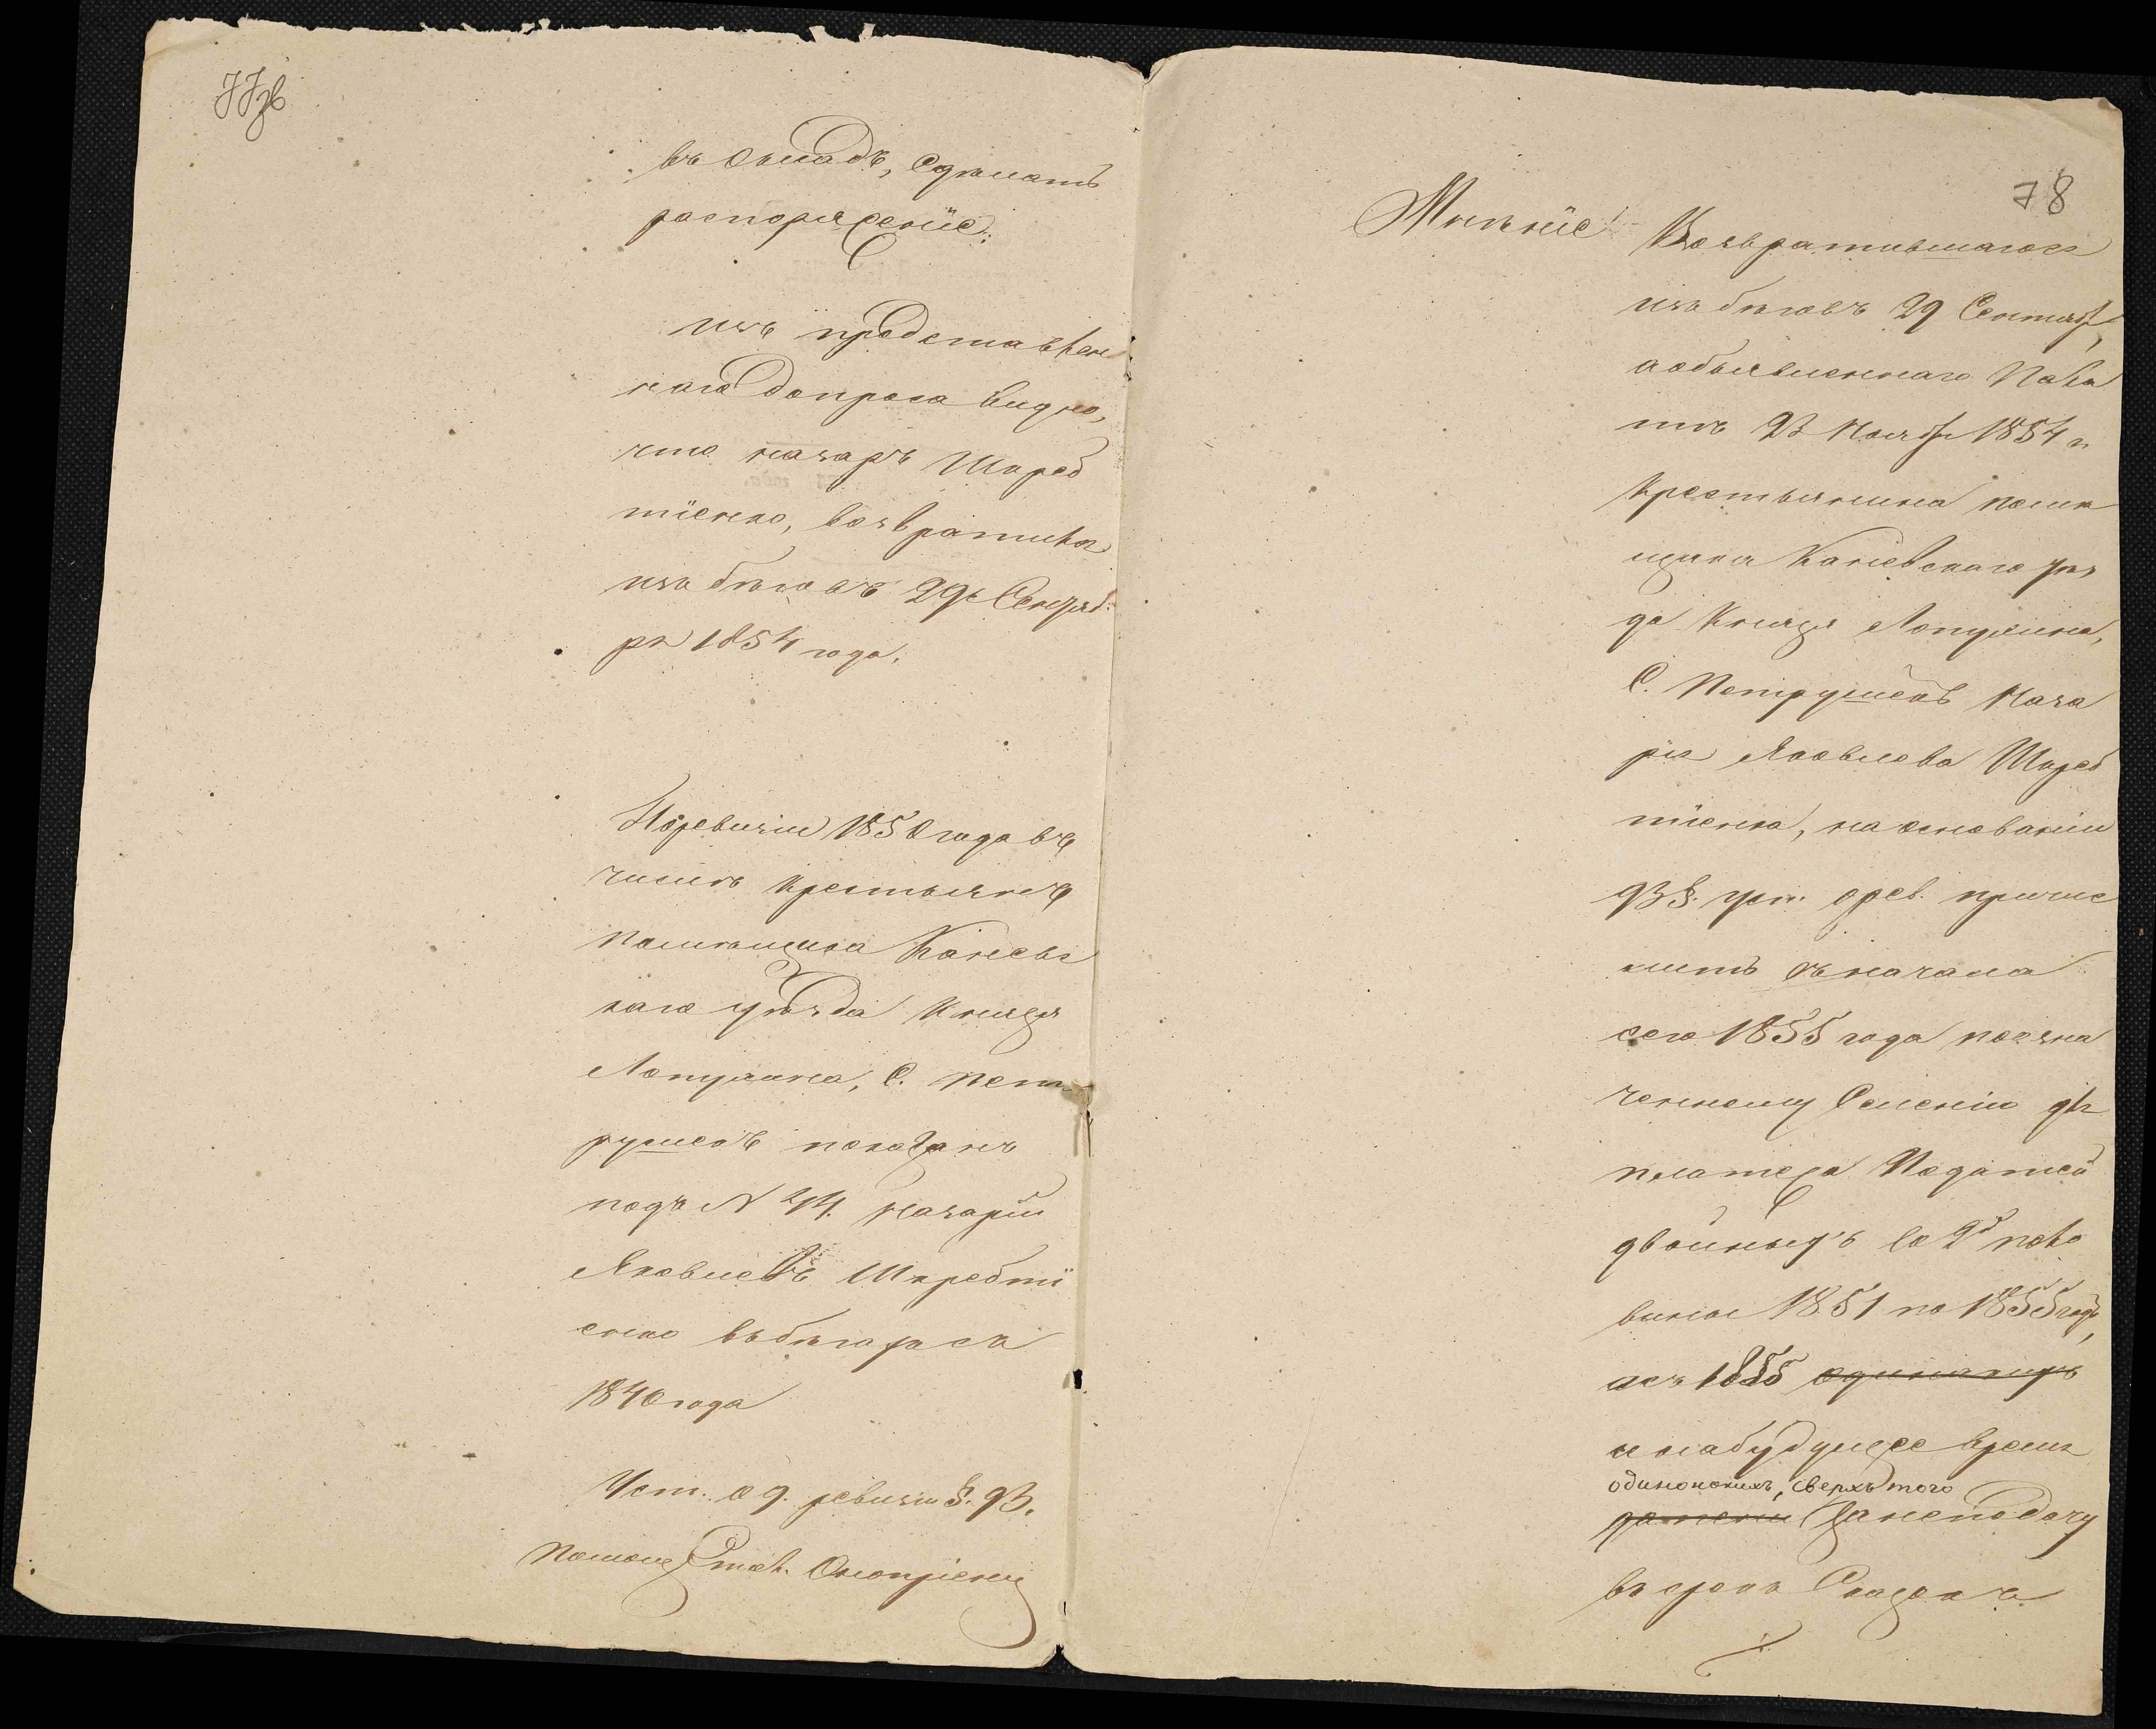 77зв
въ окладъ, сдѣлать
распоряженіе.
изъ представлен
наго допроса видно,
что назаръ Шкреб
тіенко, возвратился
изъ бѣговъ 29 Сентяб:
ря 1854 года.
По ревизіи 1850 года въ
числѣ крестьянъ
помѣщика Каневс
каго уѣзда Князя
Лопухина, С. Пет
рушекъ показанъ
подъ N 44. Назарій
Яковлевъ Шкребті
енко въ бѣгахъ съ
1840 года
Уст. о 9. ревизіи §. 93.
Помощ. Стол.
78
Мнѣніе! Возвратившагося
изъ бѣговъ 29 Сентяб,
а объявленнаго Пала
тѣ 23 Ноябр 1854 г.
крестьянина помѣ
щика Каневскаго уѣз
да Князя Лопухина,
С. Петрушекъ Наза
рія Яковлева Шкреб
тіенка, на основаніи
93 §. уст. о рев. причис
лить съ начала
сего 1855 года поозна
ченному Селенію для
платежа Податей
двойныхъ со 2й поло
вины 1851 по 1855 годъ,
а съ 1855 одинакихъ
и на будущее время
одинокихъ, сверхъ того
за неподачу
въ срокъ Сказокъ